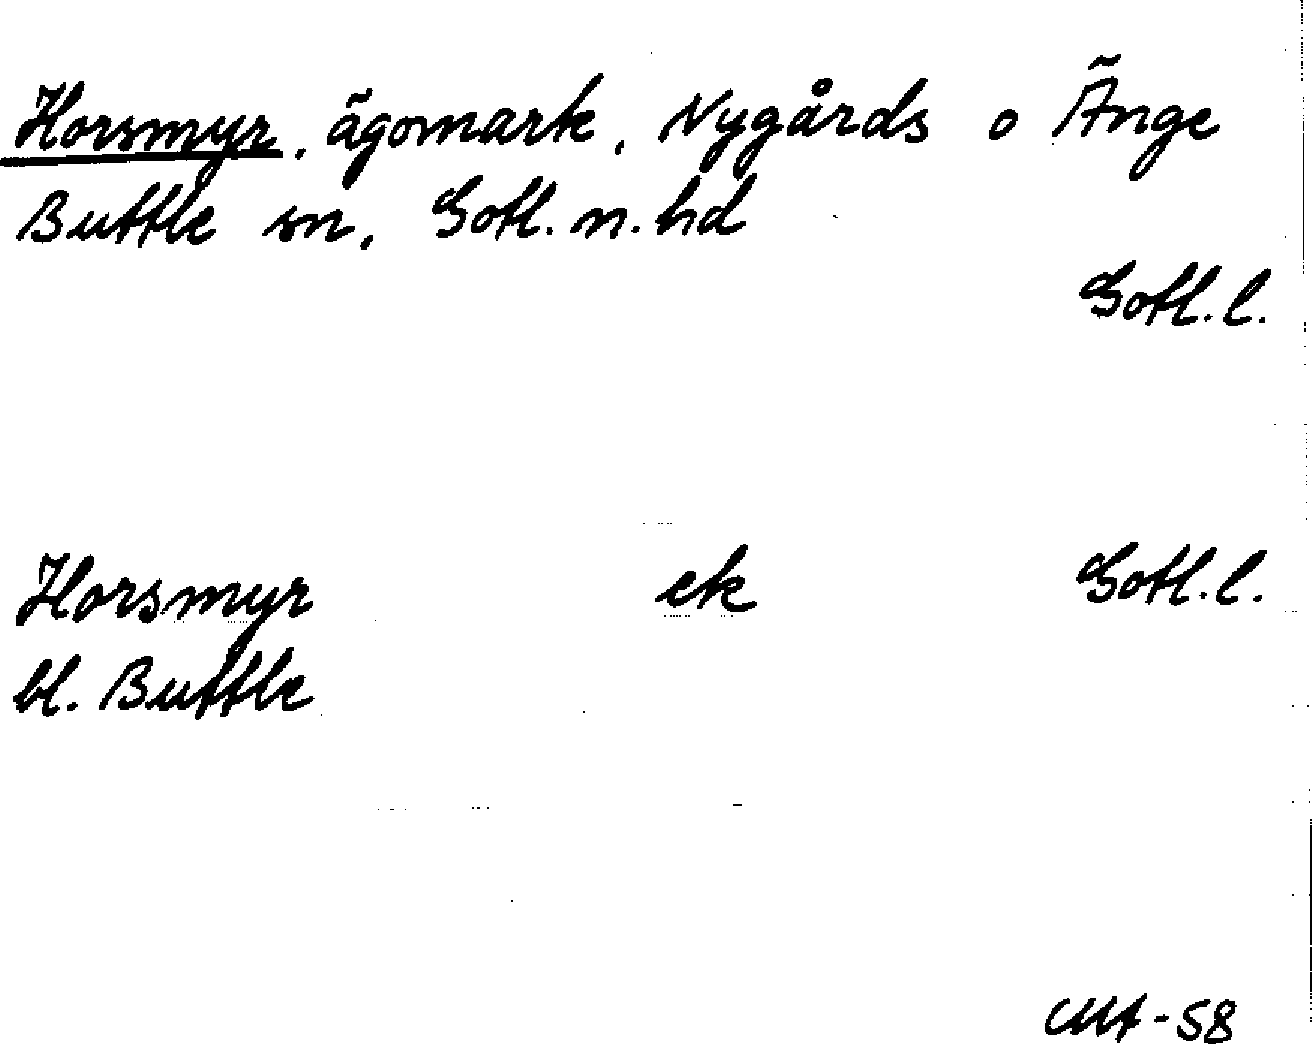 Horsmyr, ägomark, Nygårds o Änge
Buttle sn, Gotl. n. hd
Gotl. l.
Horsmyr ek Gotl. l.
bl. Buttle
-58